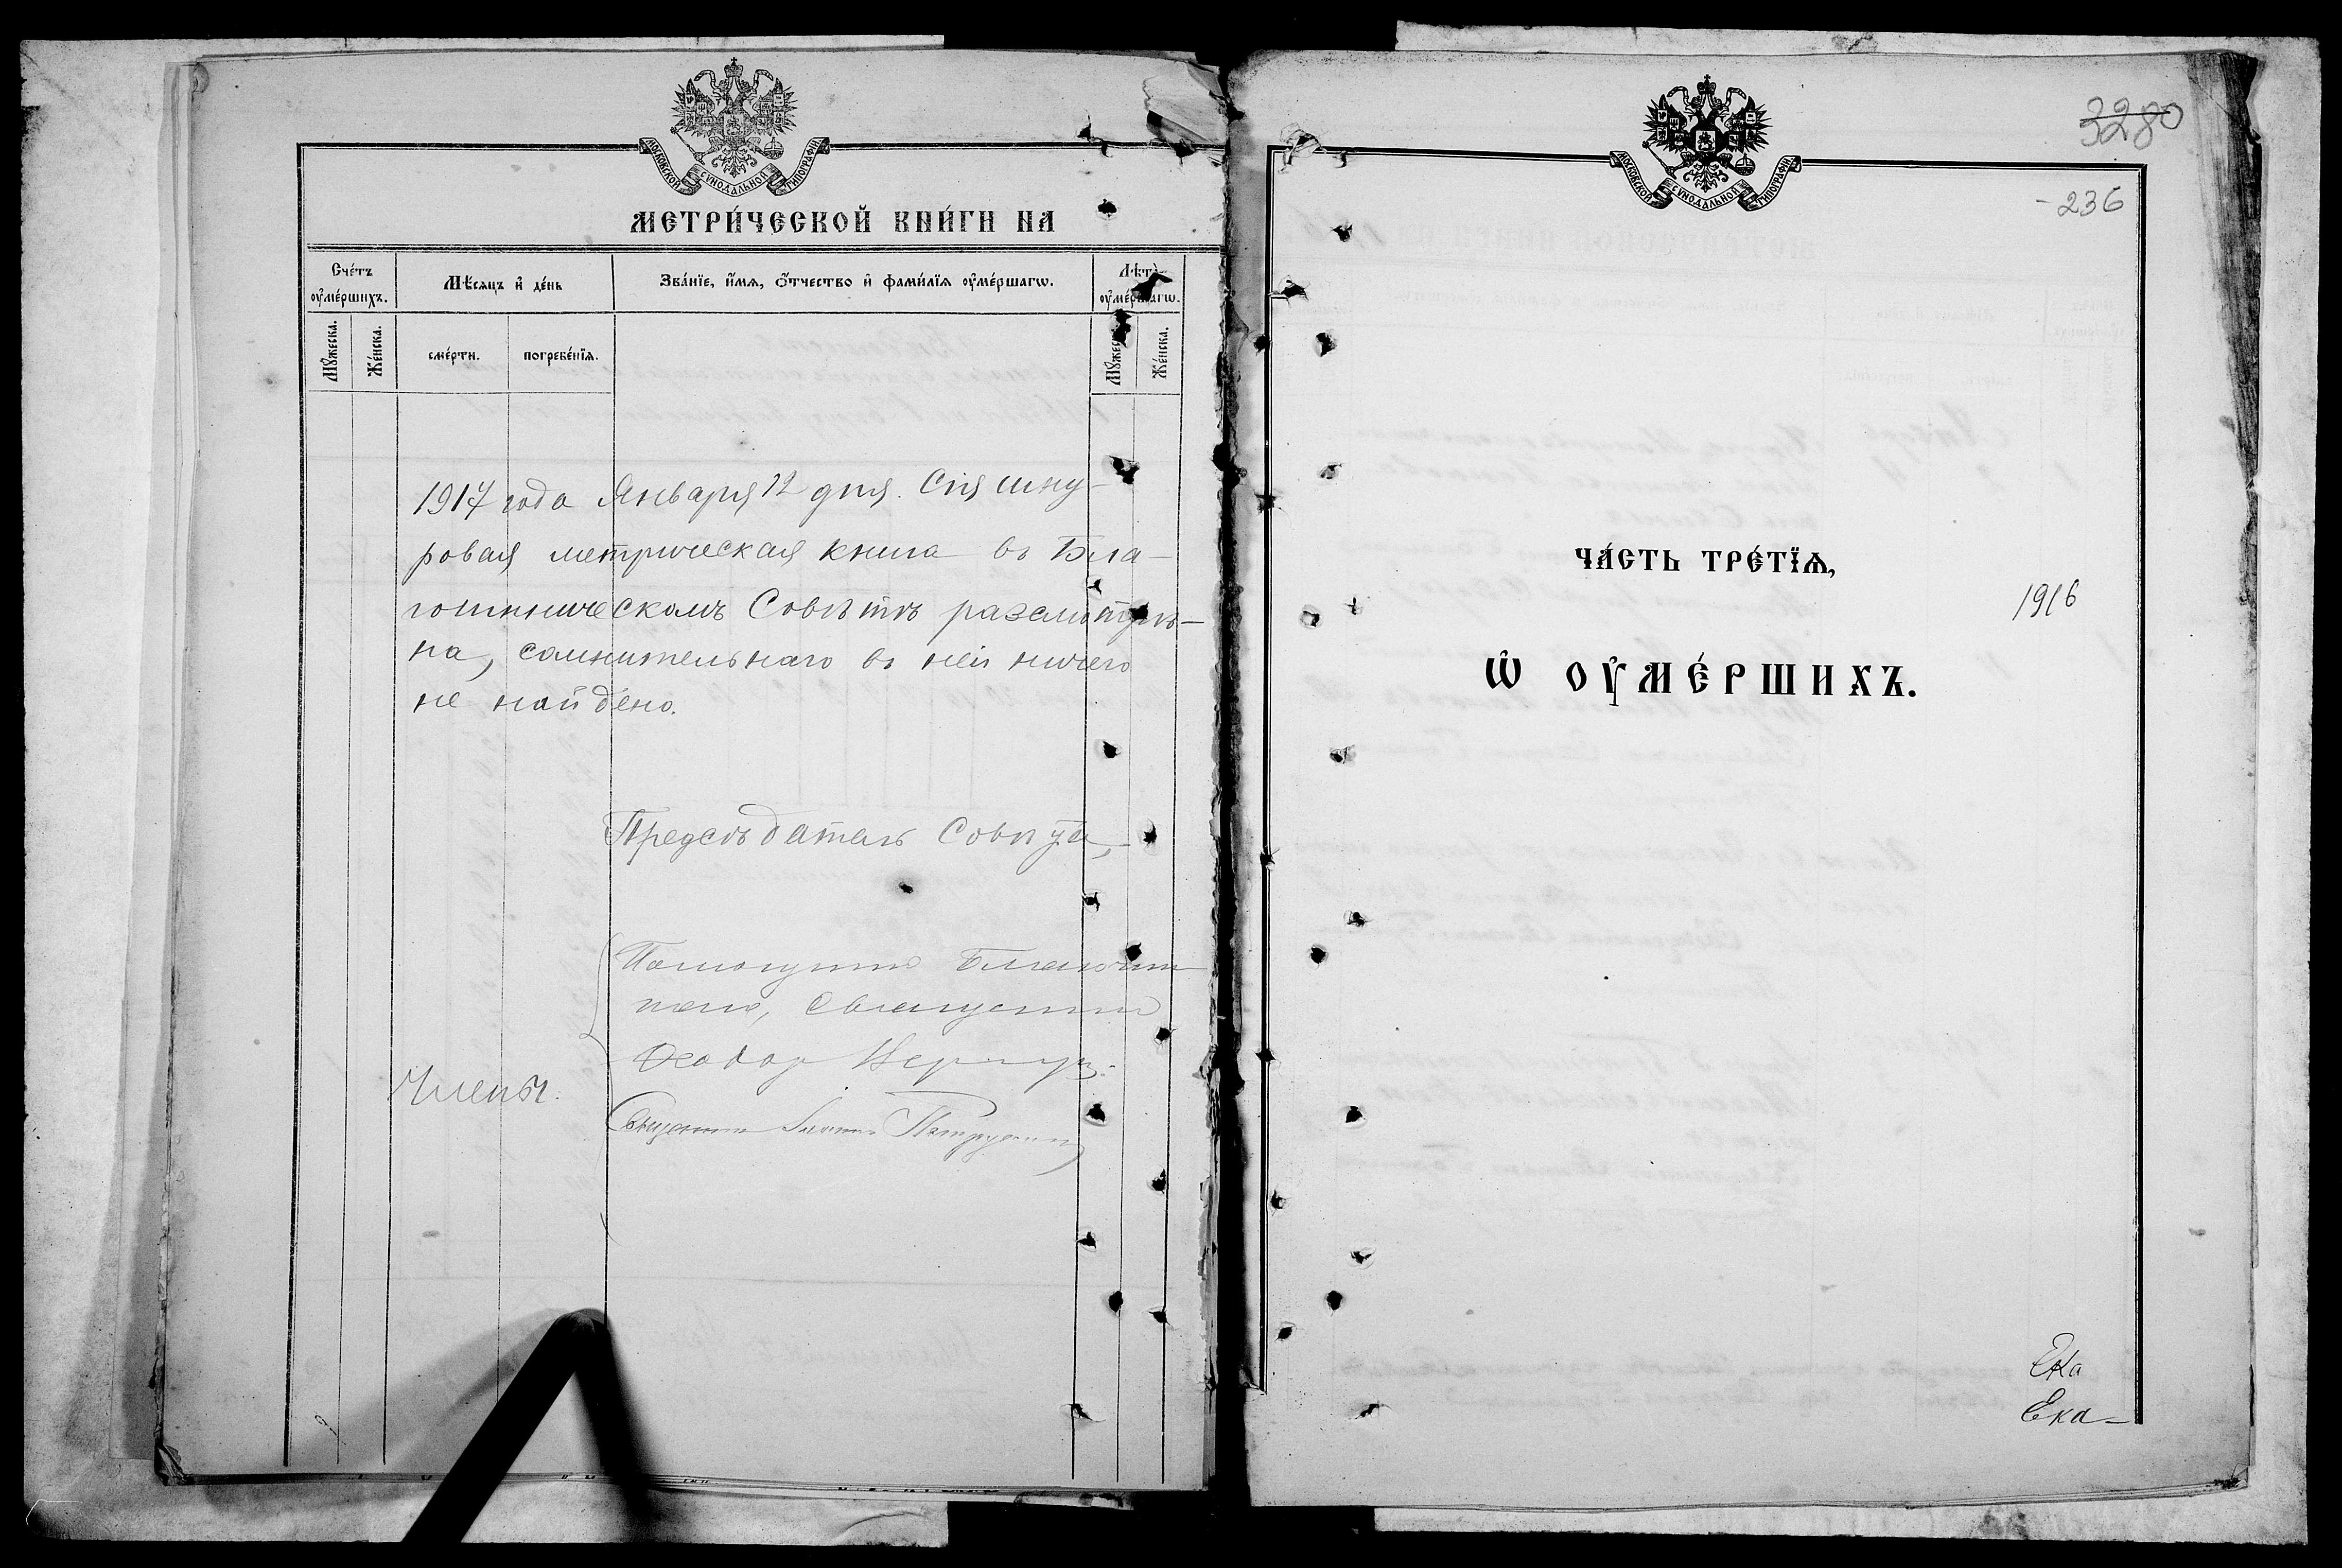 МОСКОВСКОЙ СѴНОДАЛЬНОЙ ТИПОГРАФІИ
МЕТРИ́ЧЕСКОЙ КНИ́ГИ НА
Сче́тъ оу҆ме́ршихъ.
Мѣ́сяцъ и҆ де́нь
Зва́нїе, и҆́мѧ, ѻ҆́тчество и҆ фами́лїѧ оу҆ме́ршагѡ.
Лѣ́та оу҆ме́ршагѡ.
Мꙋ́жеска.
Же́нска.
сме́рти.
погребе́нїѧ.
Мꙋ́жеска.
Же́нска.
1917 года Января 12 дня. Сія шну-
ровая метрическая книга въ Бла-
гочинническомъ Совѣтѣ разсмотрѣ-
на, сомнительнаго въ ней ничего
не найдено.
Предсѣдатель Совѣта,
Помощникъ Благочин
священникъ
Ѳеодор
Члены.
Священникъ
3280
МОСКОВСКОЙ СѴНОДАЛЬНОЙ ТИПОГРАФІИ
-236
ЧА́СТЬ ТРЕ́ТЇѦ,
1916
Ѡ҆ ОУ҆МЕ́РШИХЪ.
Ека
Ека-